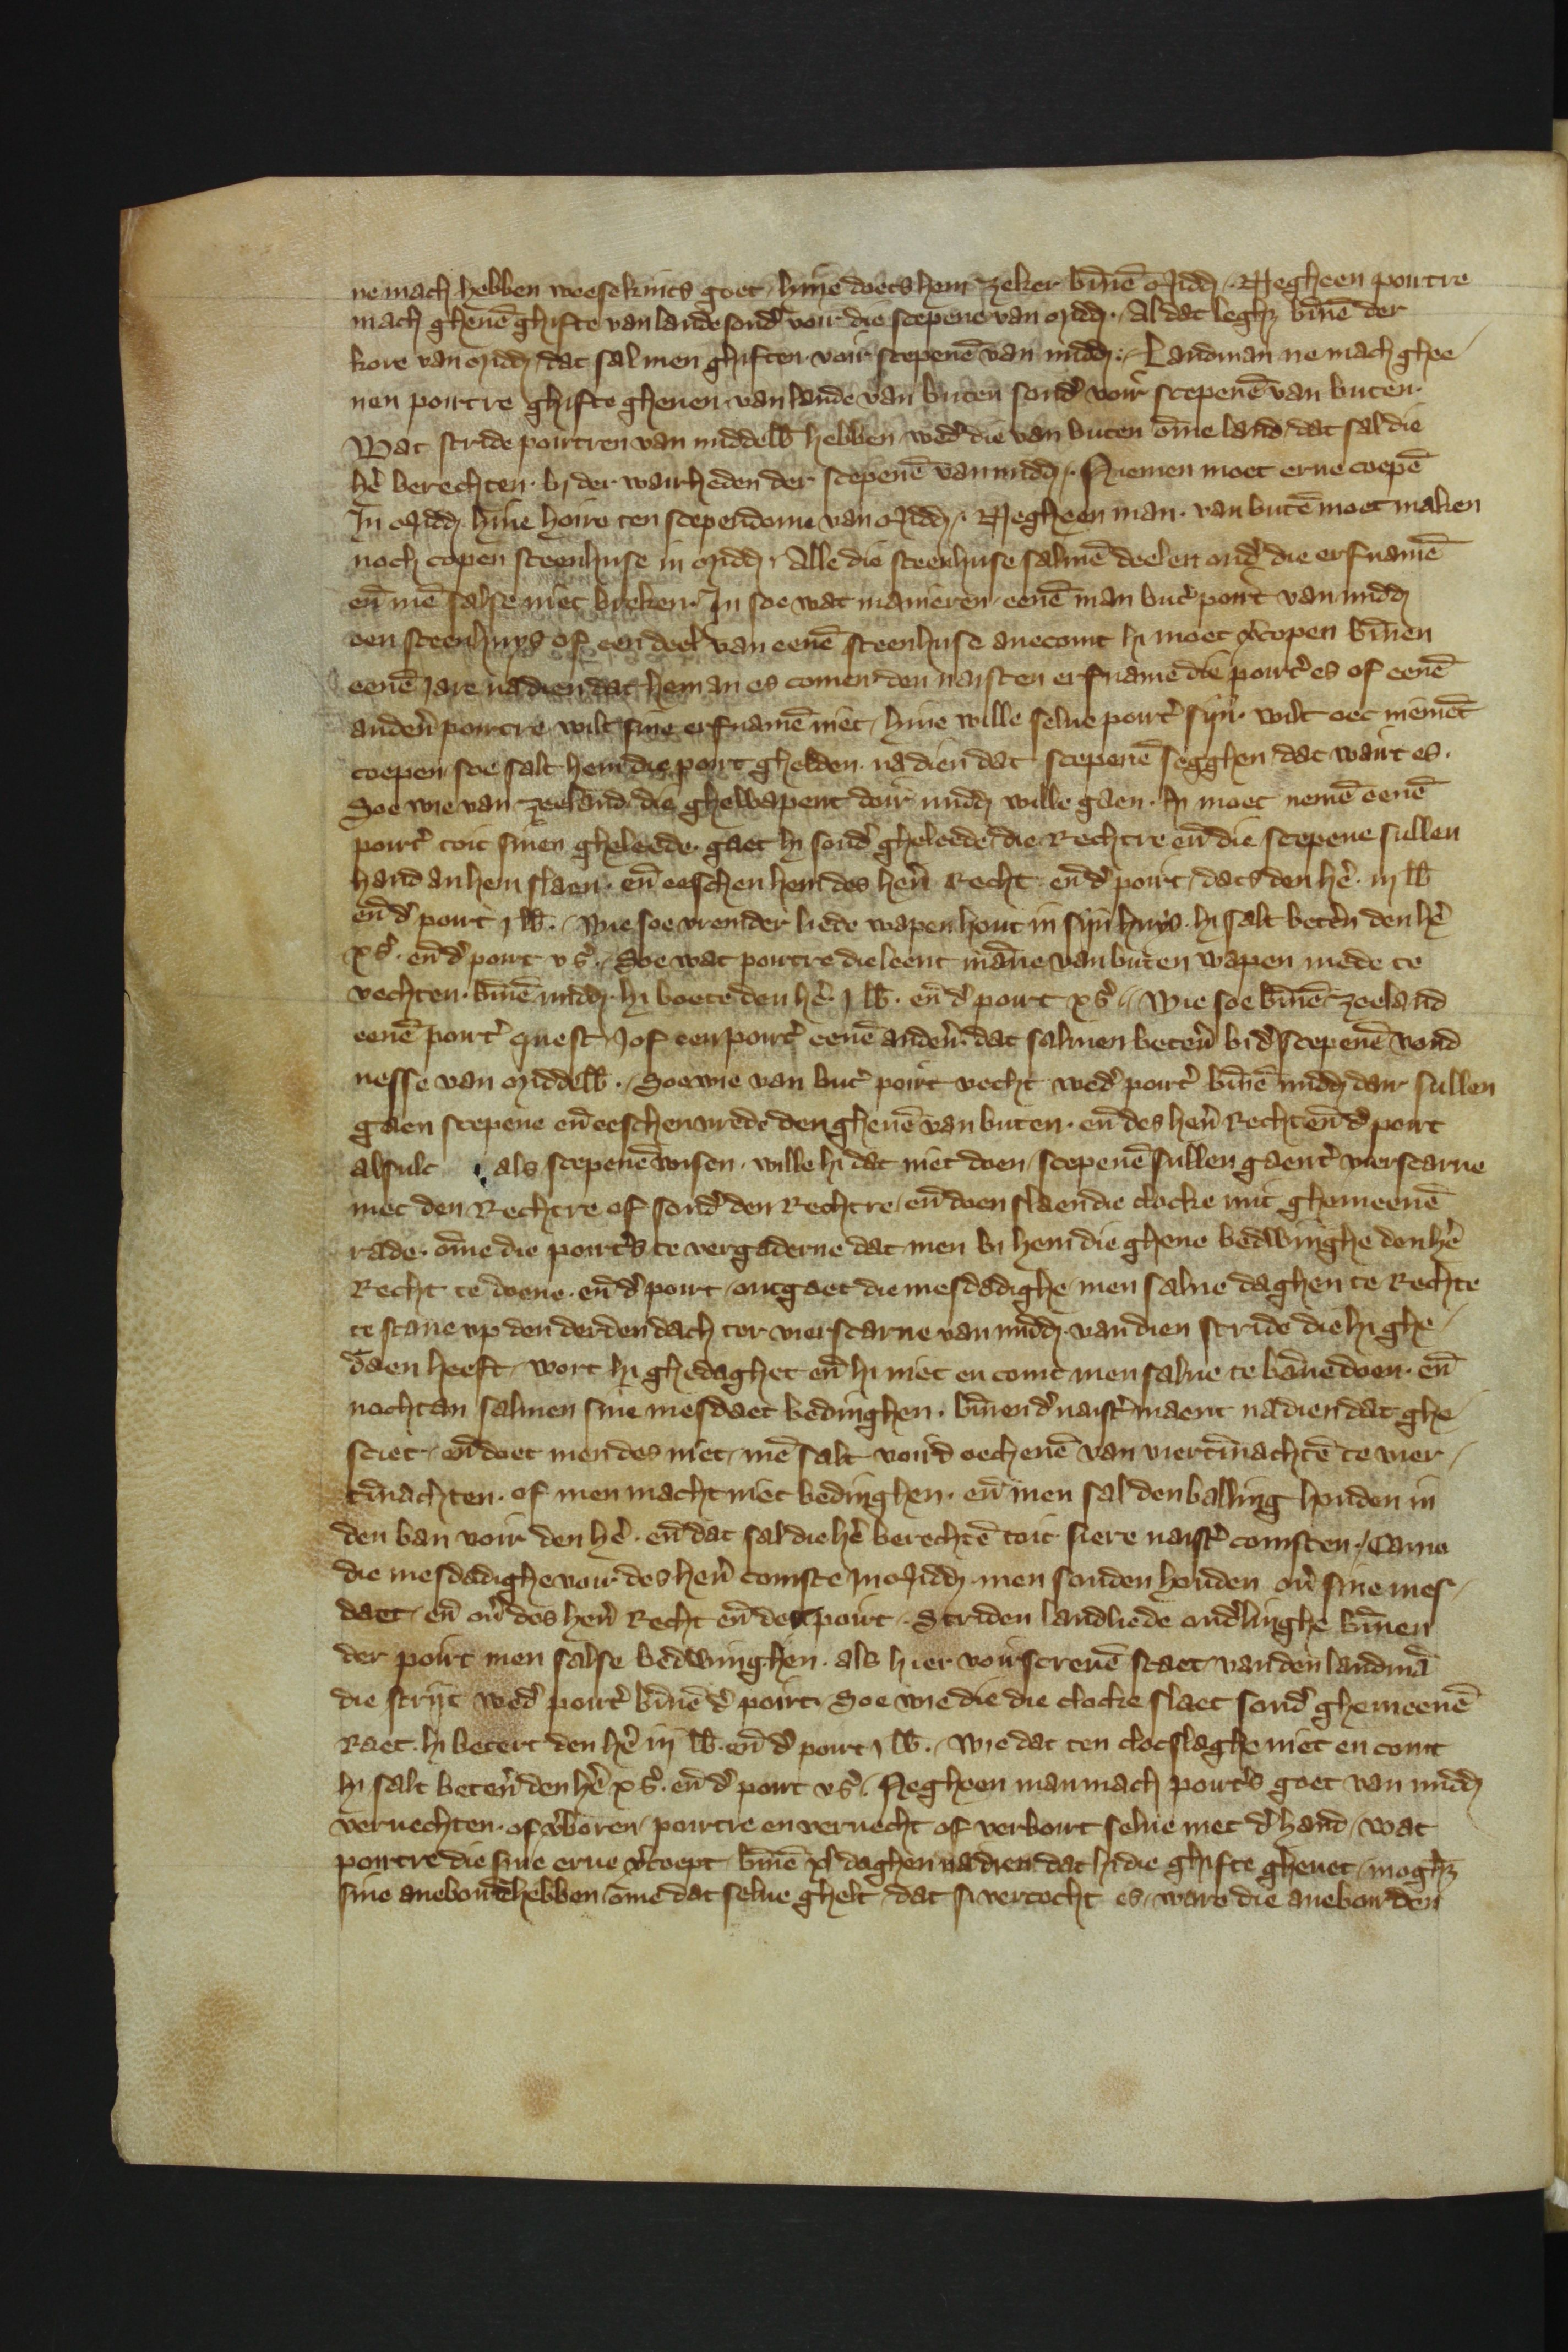 ne mach hebben weesekints goet / hine doets hem zeker bīnē Midd͛ · Negheen poirtre
mach ghenē ghifte van lande sond͛ voir die scepene van Midd͛ · Al dat leghȝ bīnē der
kore van Midd͛ dat salmen ghiften voir scepenē van midd͛ · Landman ne mach ghee
nen poirtre ghifte gheuen van lande van buten sond͛ voir scepenē van buten ·
Wat stride poirtren van middelb̄ hebben wed͛ die van buten ōme land / dat sal die
he͛ berechten · bi der wairheden der scepenē van midd͛ · Niemen moet erue coepē
In Midd͛ hine hoire ten scependome van Midd͛ · Negheen man · van butē moet maken
noch copen steenhuse in Midd͛ · Alle die steenhuse salmē deelen ond͛ die erfnamē
en̄ mē salse niet breken · In soe wat manieren eenē man but͛ poirt van midd͛
een steenhuys of een deel van eenē steenhuse anecomt hi moet v͛copen bīnen
eenē Jare nadien dat hem an es comen den naisten erfname die poirt͛ es of eenē
anden͛ poirtre wilt sine erfnamē niet / hine wille selue poirt͛ sijn · wilt oec niemēt
coepen soe salt hem die poirt ghelden nadien dat scepenē segghen dat wairt es ·
Soe wie van zeeland die ghewapent doir midd͛ wille gaen · hi moet nemē eenē
poirt͛ toit sinen gheleede · gaet hi sond͛ gheleede / die Rechtre en̄ die scepene sullen
hand an hem slaen · en̄ eeschen hem des hen͛ Recht en̄ d͛ poirt / dats den he͛ · iij lb̄
en̄ d͛ poirt j lb̄ · Wie soe vremder liede wapen hout in sijn huys · hi salt beten͛ den he͛
x s͛ · en̄ d͛ poirt v s͛ · Soe wat poirtre die leent māne van buten wapen mede te
vechten · bīnē midd͛ · hi boete den he͛ · j lb̄ · en̄ d͛ poirt x s͛ · Wie soe bīnē zeeland
eenē poirt͛ quest Jof een poirt͛ eenē anden͛ · dat salmen beten͛ bi d͛ scepenē vond
nesse van Middelb̄ · Soe wie van but͛ poirt vecht wed͛ poirt͛ bīnē midd͛ dair sullen
gaen scepene en̄ eeschen vrede den ghenē van buten · en̄ des hen͛ Recht en̄ d͛ poirt
alsulc als scepenē wisen · wille hi dat niet doen / scepenē sullen gaen t͛ vierscarne
met den Rechtre of sond͛ den Rechtre / en̄ doen slaen die clocke mit ghemeenē
rade · ōme die poirt͛s te vergaderne dat men bi hem die ghene bedwinghe den he͛
Recht te doene · en̄ d͛ poirt / ontgaet die mesdadighe / men salne daghen te Rechte
te stane vp den derden dach ter vierscarne van midd͛ van dien stride die hi ghe
daen heeft / wort hi ghedaghet en̄ hi niet en comt men salne te bānē doen · en̄
nochtan salmen sine mesdaet bedinghen · bīnen d͛ naist͛ maent nadien dat ghe
sciet / en̄ doet men des niet / mē salt voird oechenē van viertīnachtē te vier
tīnachten · of men macht niet bedinghen · en̄ men sal den balling houden in
den ban voir den he͛ · en̄ dat sal die he͛ berechtē toit siere naist͛ comsten / Came
die mesdadighe voir des hen͛ comste in Midd͛ men souden houden ou͛ sine mes
daet / en̄ ou͛ des hen͛ Recht en̄ der poirt · Striden landliede ond͛linghe bīnen
der poirt men salse bedwinghen · als hier voirscreuē staet van den landmā
die strijt wed͛ poirt͛ bīnē d͛ poirt · Soe wie die die clocke slaet sond͛ ghemeenē
Raet · hi betert den he͛ iij lb̄ · en̄ d͛ poirt j lb̄ · Wie dat ten clocslaghe niet en comt
hi salt beten͛ den he͛ x s͛ · en̄ d͛ poirt v s͛ · Negheen man mach poirt͛s goet van midd͛
veruechten · of v͛boren / poirtre en veruecht of verboirt selue met d͛ hand / wat
poirtre die sine erue v͛coept bīnē xl daghen nadien dat hi die ghifte gheuet / moghȝ
sine aneboirdē hebben ōme dat selue ghelt dat si vercocht es / ware die aneboirden